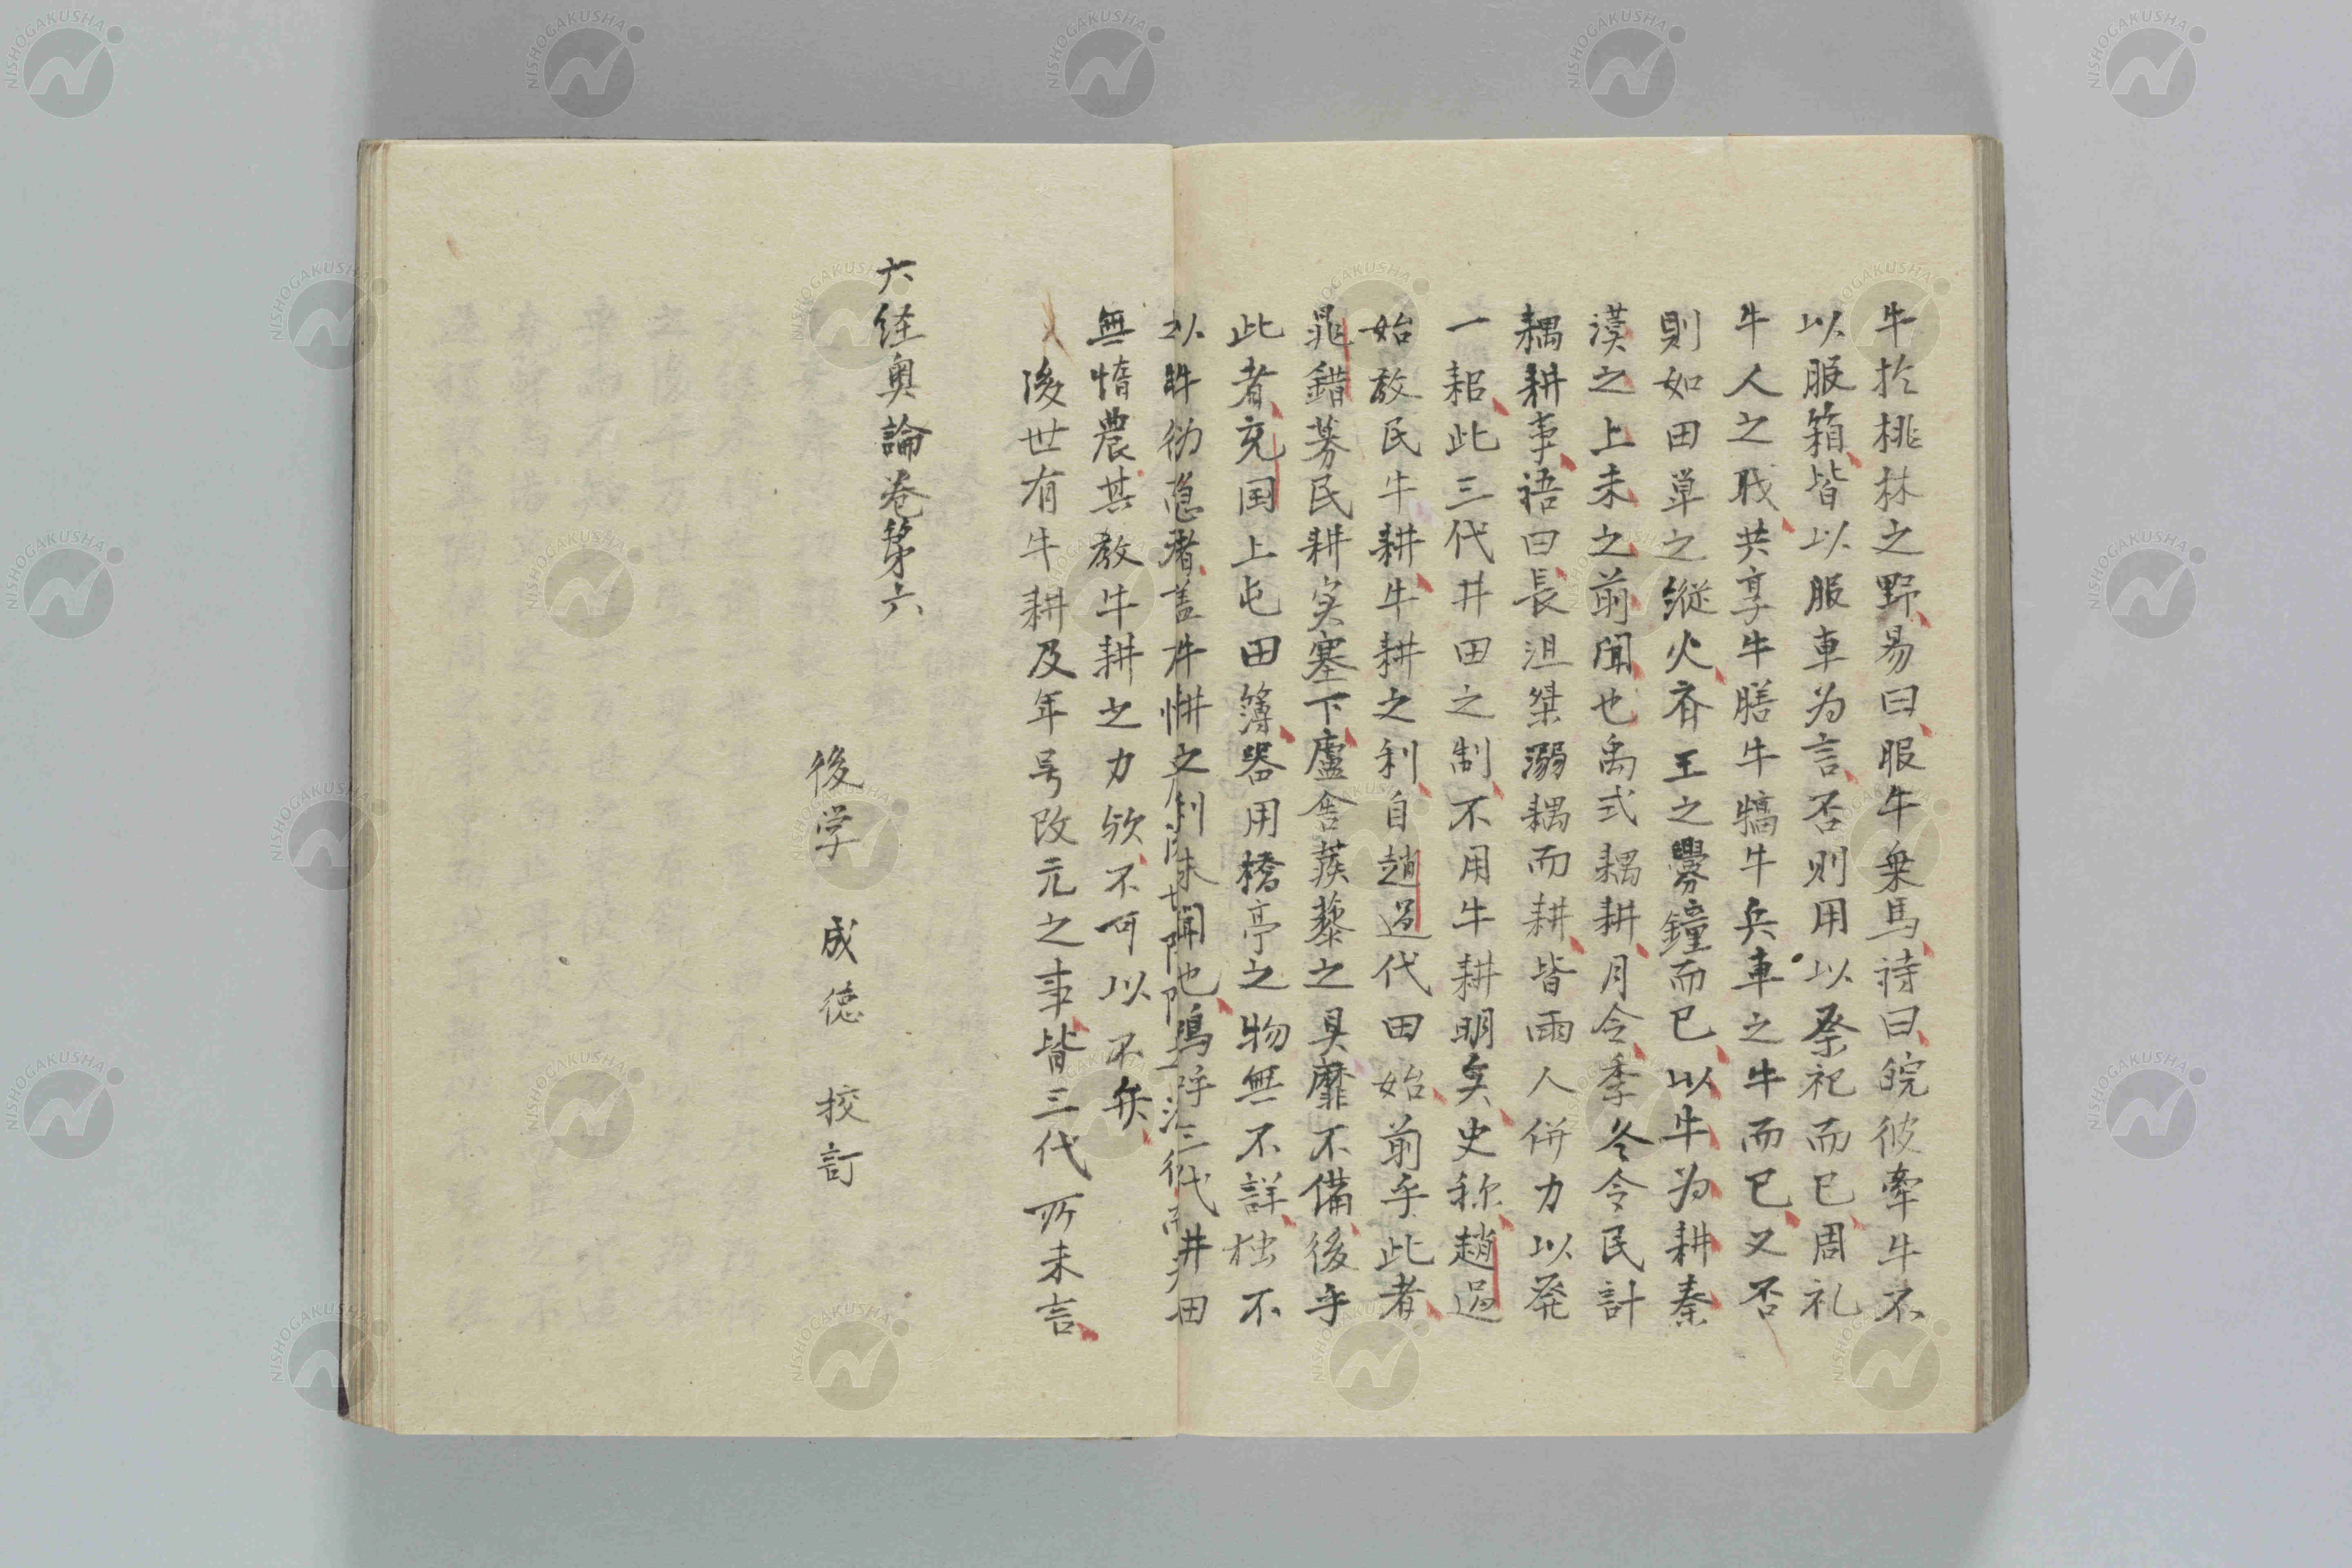 牛於桃林之野易曰服牛乗馬詩曰皖彼牽牛不
以服箱皆以服車为言否则用以祭祀而已周礼
牛人之职共享牛膳牛犒牛兵車之牛而已又否
则如田单之縦火斉王之釁鐘而已以牛为耕秦
漢之上未之前聞也禹式耦耕月令季冬令民計
耦耕事語曰長沮桀溺耦而耕皆兩人併力以発
一耜此三代井田之制不用牛耕明矣史称趙過
始教民牛耕牛耕之利自趙過代田始前乎此者
晁錯募民耕实塞下廬舎蒺藜之具靡不備後乎
此者充国上屯田簿器用橋亭之物無不詳独不
及牛耕者盖牛耕之利未聞也嗚呼三代井田
無惰農其教牛耕之力欤不可以不矣
後世有牛耕及年号改元之事皆三代所未言
六经奥論卷第六
後学 成徳 校訂